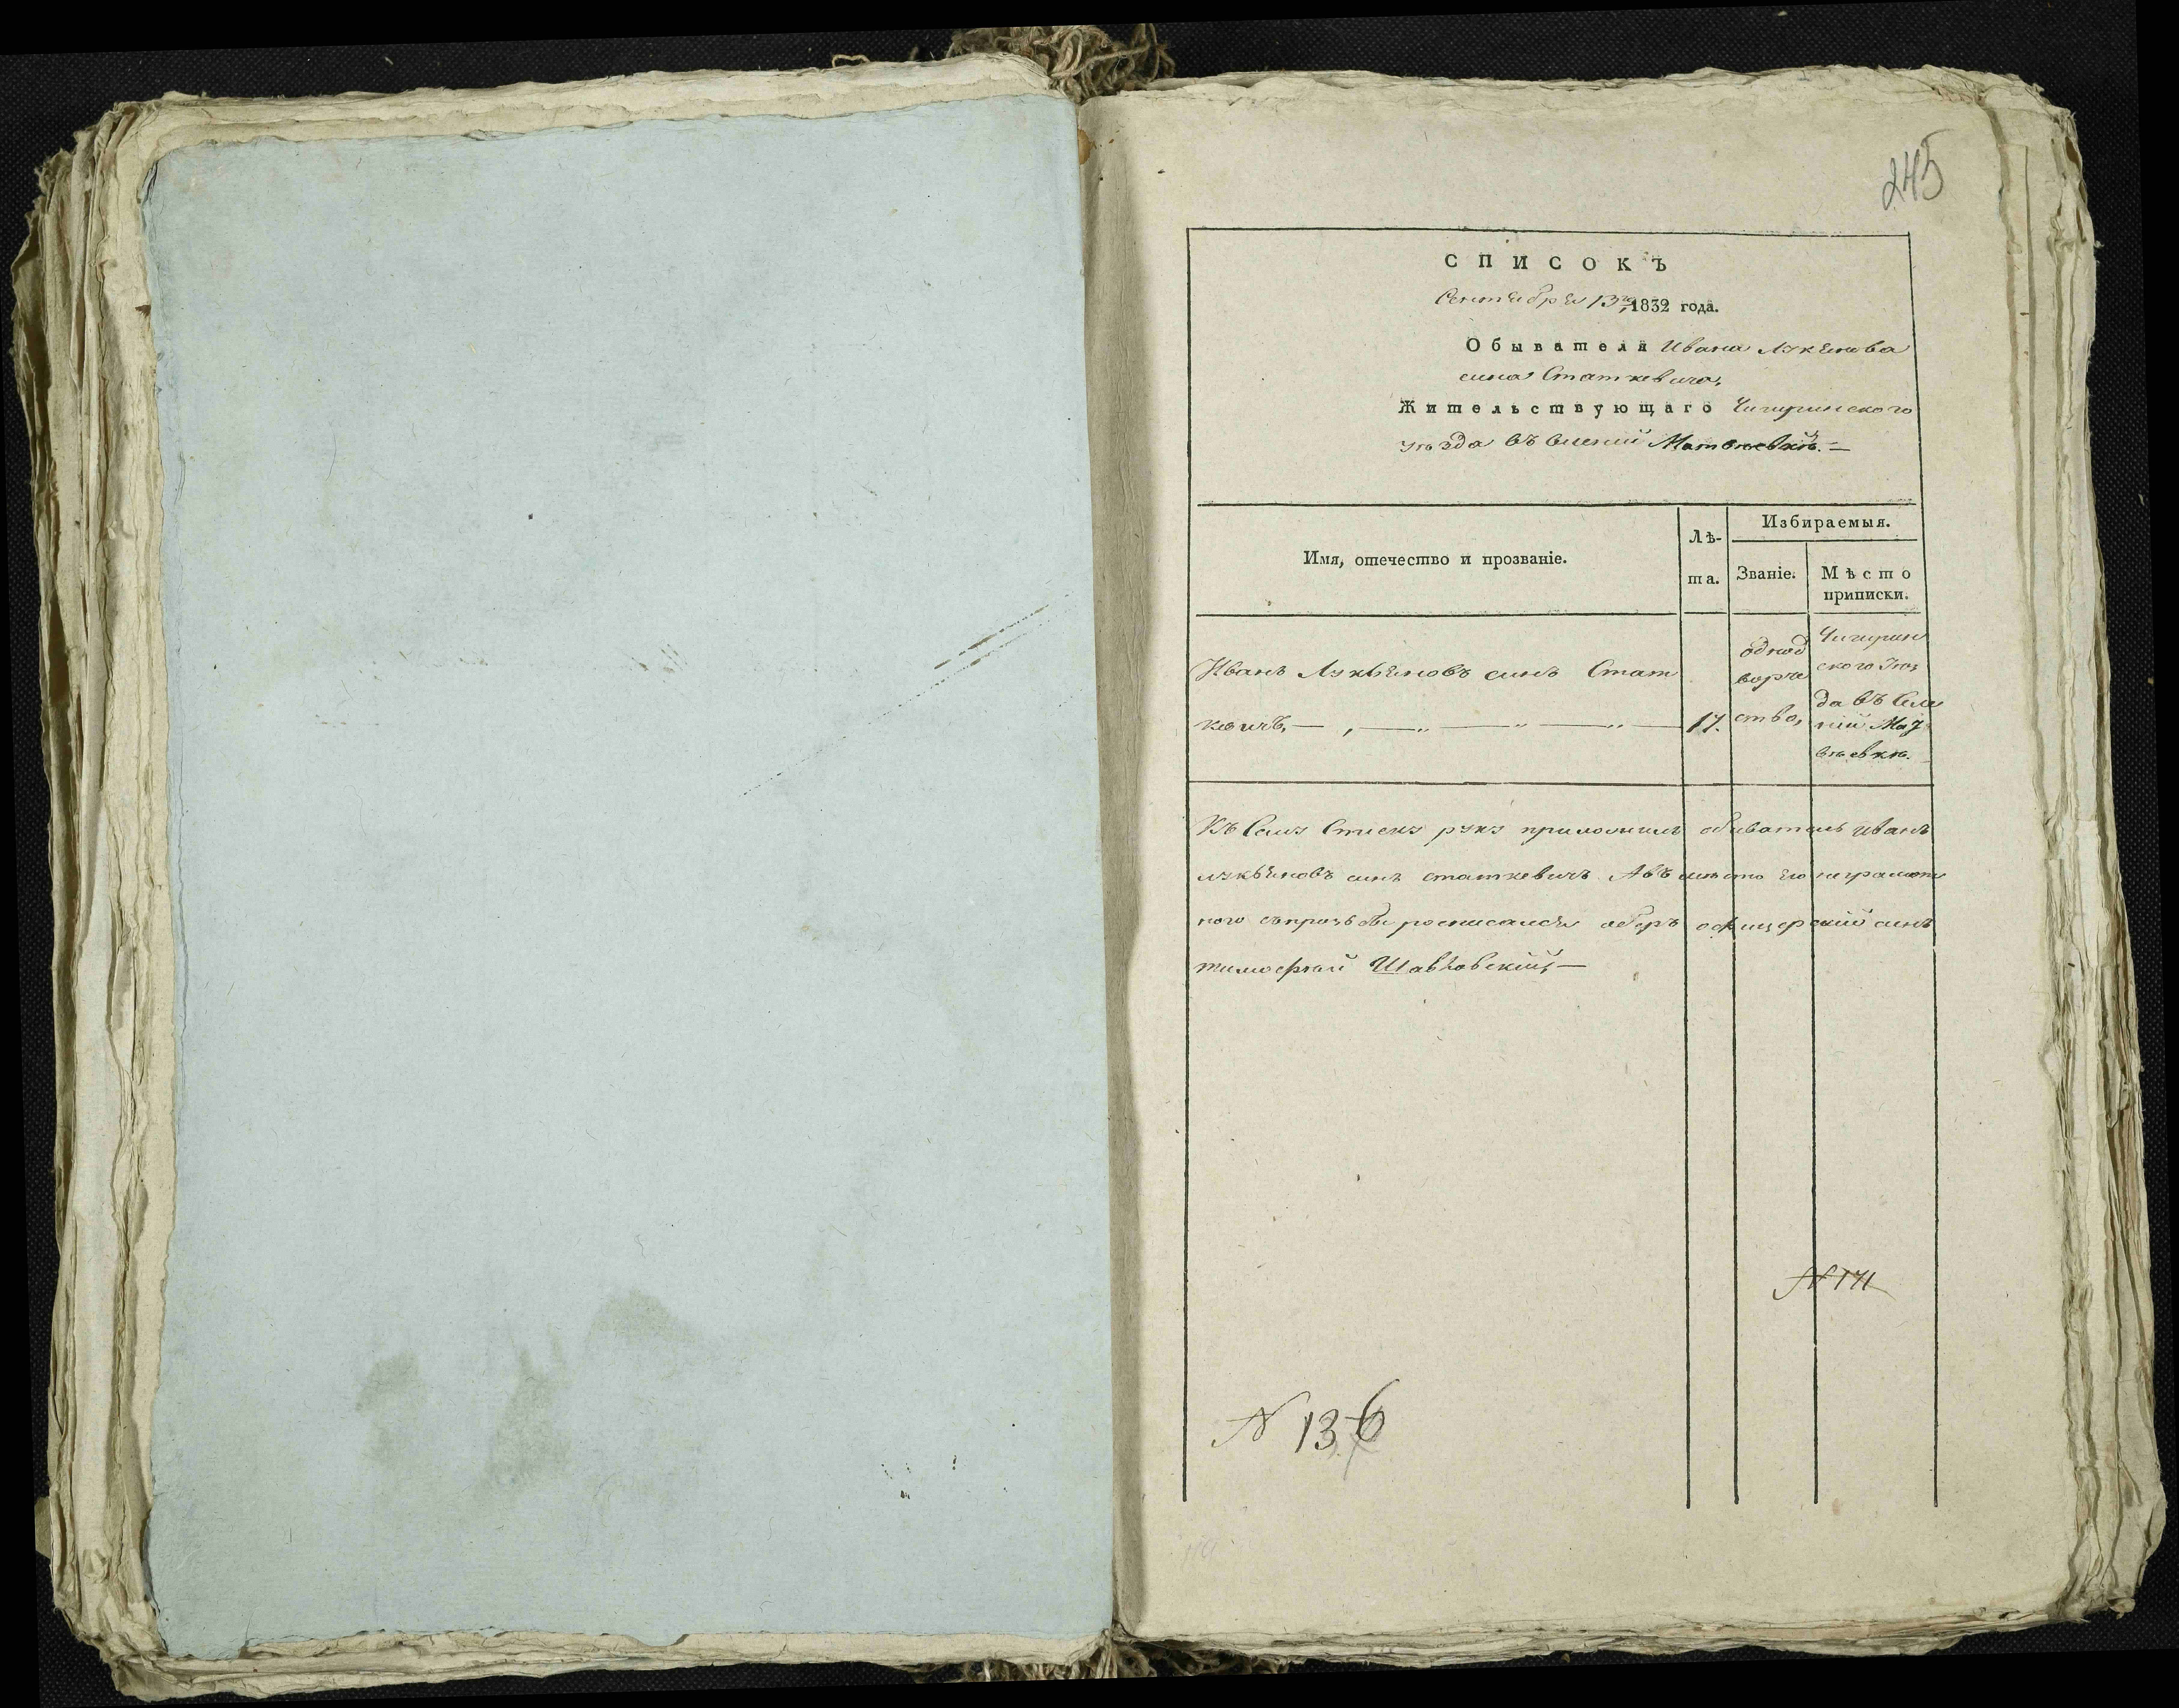 245
СПИСОКЪ
Сентября 13го 1832 года.
Обывателя Ивана Лукянова
сина Статкевича,
Жительствующаго Чигиринского
уезда въ
Имя, отечество и прозваніе.
Лѣ-
та.
Избираемыя.
Званіе.
Мѣсто
приписки.
Иванъ Лукьяновъ синъ Стат
кевичъ,
17.
однод
ворче
ство,
Чигирин
ского Уѣз
да въ Селе
ніи Мат
вѣевкѣ.
Къ Сему Списку руку приложилъ обыватель Иванъ
лукьяновъ синъ статкевичъ Авъ место его неграмот
ного росписался оберъ офицерский синъ
тимофтей
N 171
N 136